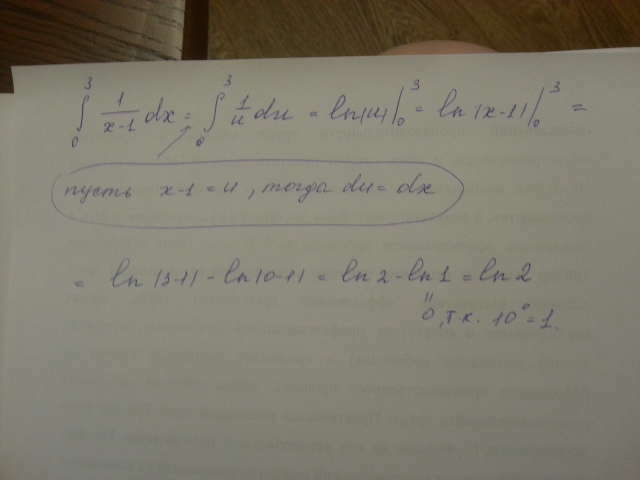 ∫₀³ 1/(x-1) dx = ∫₀³ 1/u du = ln|u| |₀³ = ln|x-1| |₀³ =
пусть x-1 = u, тогда du = dx
= ln|3-1| - ln|0-1| = ln 2 - ln 1 = ln 2
"
0, т.к. 10⁰ = 1.